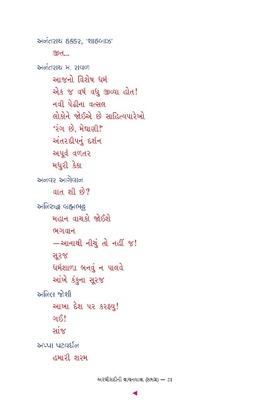 અનંતરાય ઠક્કર, 'શાહબાઝ'
જીત...
અનંતરાય મ. રાવળ
આજનો વિશેષ ધર્મ
એક જ વર્ષ વધુ જીવ્યા હોત!
નવી પેઢીના વત્સલ
લોકોને જોઈએ છે સાહિત્યપારેખો
'રંગ છે, મેઘાણી!'
અંતરદીપનું દર્શન
અપૂર્વ વળતર
મધુરી કેકા
અનવર આગેવાન
વાત શી છે?
અનિરુદ્ધ બ્રહ્મભટ્ટ
મહાન વાચકો જોઈશે
ભગવાન
—આનાથી નીચું તો નહીં જ!
સૂરજ
ધર્મશાળા બનવું ન પાલવે
આંખે કંકુના સૂરજ
અનિલ જોશી
આખા દેશ પર કરફ્યુ!
ગઈ!
સાંજ
અપ્પા પટવર્ધન
હમારી શરમ
અરધીસદીની વાચનયાત્રા (સમગ્ર) — 21